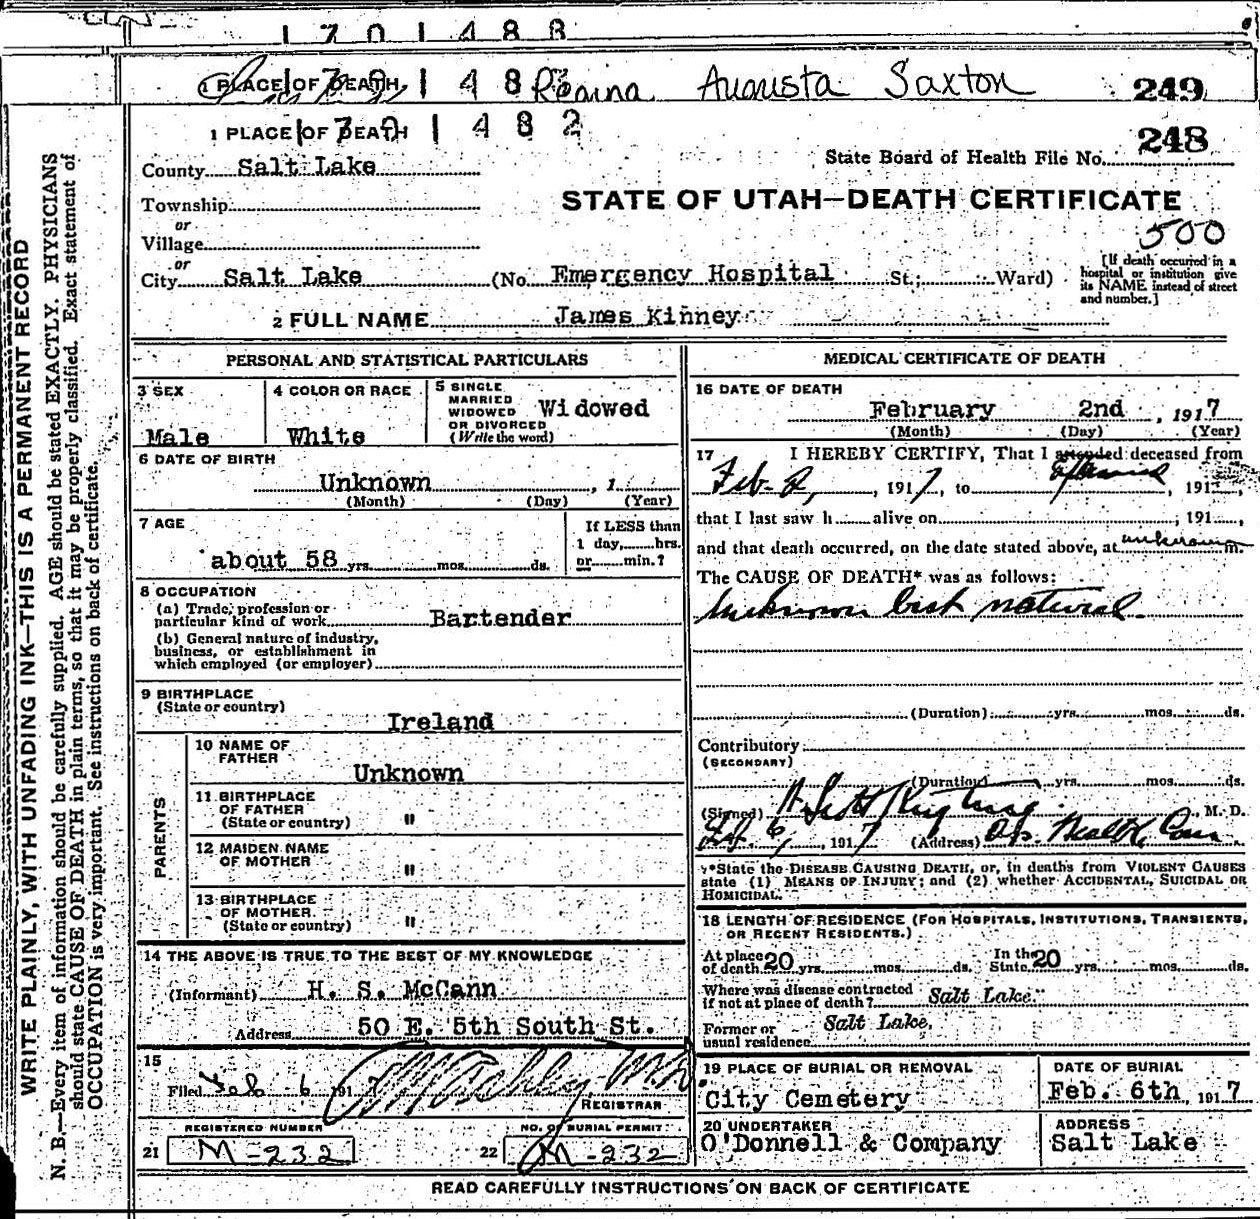 1701488
1 PLACE OF DEATH 1 4 8 Regina Augusta Saxton 249
1 PLACE OF DEATH 1 4 8 2 248
State Board of Health File No.
County Salt Lake
STATE OF UTAH—DEATH CERTIFICATE
Township
or
500
Village
or
City Salt Lake (No. Emergency Hospital St.; Ward)
[If death occurred in a
hospital or institution give
its NAME instead of street
and number.]
2 FULL NAME James Kinney
PERSONAL AND STATISTICAL PARTICULARS
3 SEX
Male
4 COLOR OR RACE
White
5 SINGLE
MARRIED
WIDOWED
OR DIVORCED
(Write the word)
Widowed
6 DATE OF BIRTH
Unknown , 1
(Month) (Day) (Year)
7 AGE
about 58 yrs. mos. ds.
If LESS than
1 day, hrs.
or min.?
8 OCCUPATION
(a) Trade, profession or
particular kind of work Bartender
(b) General nature of industry,
business, or establishment in
which employed (or employer)
9 BIRTHPLACE
(State or country)
Ireland
PARENTS
10 NAME OF
FATHER
Unknown
11 BIRTHPLACE
OF FATHER
(State or country) "
12 MAIDEN NAME
OF MOTHER "
13 BIRTHPLACE
OF MOTHER
(State or country) "
14 THE ABOVE IS TRUE TO THE BEST OF MY KNOWLEDGE
(Informant) H. S. McCann
Address 50 E. 5th South St.
15
Filed Feb 6 1917 M.D.
REGISTRAR
REGISTERED NUMBER
21 M-232
NO. OF BURIAL PERMIT
22 M-232
MEDICAL CERTIFICATE OF DEATH
16 DATE OF DEATH
February 2nd , 1917
(Month) (Day) (Year)
17 I HEREBY CERTIFY, That I attended deceased from
Feb. 2, , 1917, to , 191
that I last saw h alive on ; 191 ,
and that death occurred, on the date stated above, at unknown m.
The CAUSE OF DEATH* was as follows:
Unknown but natural.
(Duration) yrs. mos. ds.
Contributory
(SECONDARY)
(Duration) yrs. mos. ds.
(Signed) , M. D.
Feb. 6, , 1917 (Address) Health Com
*State the DISEASE CAUSING DEATH, or, in deaths from VIOLENT CAUSES
state (1) MEANS OF INJURY; and (2) whether ACCIDENTAL, SUICIDAL OR
HOMICIDAL.
18 LENGTH OF RESIDENCE (FOR HOSPITALS, INSTITUTIONS, TRANSIENTS,
OR RECENT RESIDENTS.)
At place
of death 20 yrs. mos. ds.
In the
State 20 yrs. mos. ds.
Where was disease contracted
if not at place of death? Salt Lake.
Former or
usual residence Salt Lake.
19 PLACE OF BURIAL OR REMOVAL
City Cemetery
DATE OF BURIAL
Feb. 6th, 1917
20 UNDERTAKER
O'Donnell & Company
ADDRESS
Salt Lake
READ CAREFULLY INSTRUCTIONS ON BACK OF CERTIFICATE
WRITE PLAINLY, WITH UNFADING INK—THIS IS A PERMANENT RECORD
N. B.—Every item of information should be carefully supplied. AGE should be stated EXACTLY. PHYSICIANS
should state CAUSE OF DEATH in plain terms, so that it may be properly classified. Exact statement of
OCCUPATION is very important. See instructions on back of certificate.